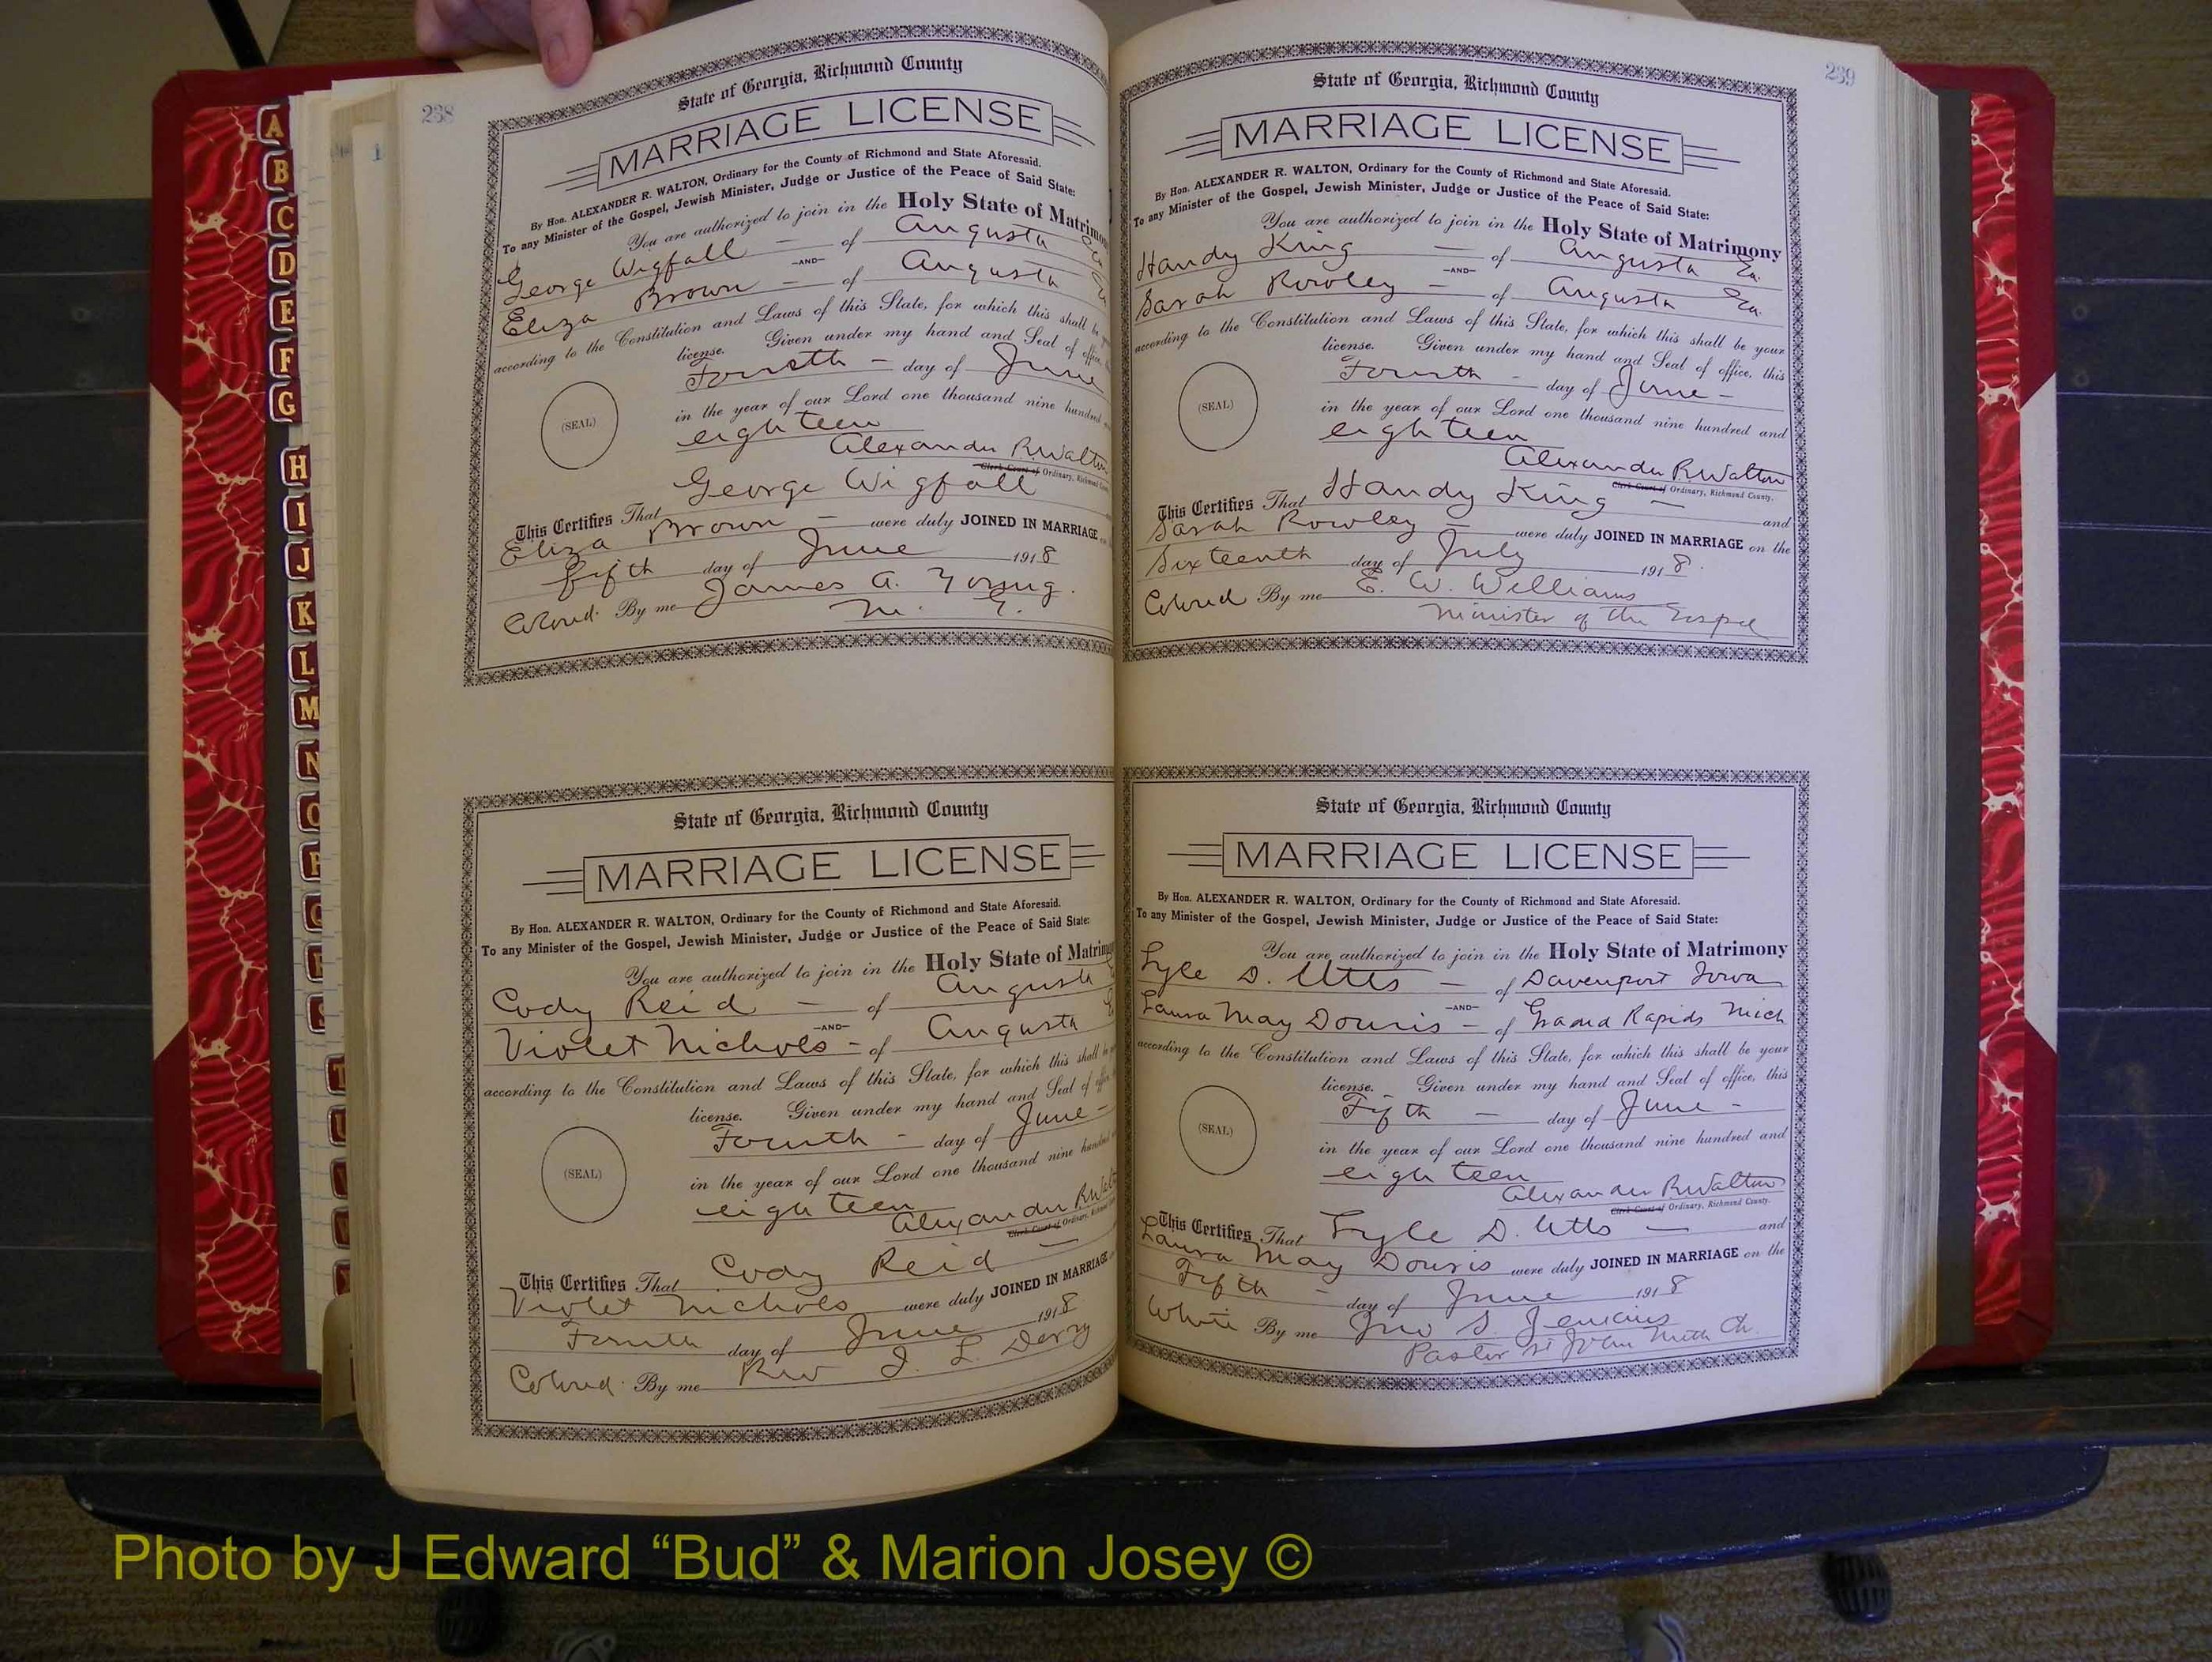 238
State of Georgia, Richmond County
MARRIAGE LICENSE
By Hon. ALEXANDER R. WALTON, Ordinary for the County of Richmond and State Aforesaid.
To any Minister of the Gospel, Jewish Minister, Judge or Justice of the Peace of Said State:
You are authorized to join in the Holy State of Matrimony
George Wigfall — of Augusta
—AND—
Eliza Brown — of Augusta
according to the Constitution and Laws of this State, for which this shall be
license. Given under my hand and Seal of office,
Fourth — day of June
in the year of our Lord one thousand nine hundred
eighteen
(SEAL)
Alexander R. Walton
Clerk Court of Ordinary, Richmond County
George Wigfall
This Certifies That
Eliza Brown — were duly JOINED IN MARRIAGE
fifth day of June 1918
Colored. By me James A. Young.
M. G.
State of Georgia, Richmond County
MARRIAGE LICENSE
By Hon. ALEXANDER R. WALTON, Ordinary for the County of Richmond and State Aforesaid.
To any Minister of the Gospel, Jewish Minister, Judge or Justice of the Peace of Said State:
You are authorized to join in the Holy State of Matrimony
Cody Reid — of Augusta
—AND—
Violet Nichols — of Augusta
according to the Constitution and Laws of this State, for which this shall be
license. Given under my hand and Seal of office
Fourth — day of June —
in the year of our Lord one thousand nine hundred
eighteen
(SEAL)
Alexander R. Walton
Clerk Court of Ordinary, Richmond
This Certifies That Cody Reid —
Violet Nichols were duly JOINED IN MARRIAGE
Fourth day of June 1918
Colored. By me Rev J. L. Derry
239
State of Georgia, Richmond County
MARRIAGE LICENSE
By Hon. ALEXANDER R. WALTON, Ordinary for the County of Richmond and State Aforesaid.
To any Minister of the Gospel, Jewish Minister, Judge or Justice of the Peace of Said State:
You are authorized to join in the Holy State of Matrimony
Handy King — of Augusta Ga.
—AND—
Sarah Rowley — of Augusta Ga.
according to the Constitution and Laws of this State, for which this shall be your
license. Given under my hand and Seal of office, this
Fourth — day of June —
in the year of our Lord one thousand nine hundred and
eighteen
(SEAL)
Alexander R. Walton
Clerk Court of Ordinary, Richmond County.
This Certifies That Handy King — and
Sarah Rowley — were duly JOINED IN MARRIAGE on the
Sixteenth day of July 1918.
Colored By me E. W. Williams
Minister of the Gospel
State of Georgia, Richmond County
MARRIAGE LICENSE
By Hon. ALEXANDER R. WALTON, Ordinary for the County of Richmond and State Aforesaid.
To any Minister of the Gospel, Jewish Minister, Judge or Justice of the Peace of Said State:
You are authorized to join in the Holy State of Matrimony
Lyle D. Utts — of Davenport Iowa
—AND—
Laura May Douris — of Grand Rapids Mich
according to the Constitution and Laws of this State, for which this shall be your
license. Given under my hand and Seal of office, this
Fifth — day of June —
in the year of our Lord one thousand nine hundred and
eighteen
(SEAL)
Alexander R. Walton
Clerk Court of Ordinary, Richmond County.
This Certifies That Lyle D. Utts — and
Laura May Douris were duly JOINED IN MARRIAGE on the
Fifth — day of June 1918
White By me Jno S. Jenkins
Pastor St John Meth Ch.
A
B
C
D
E
F
G
H
I
J
K
L
M
N
O
P
Q
R
S
T
U
V
W
Photo by J Edward “Bud” & Marion Josey ©